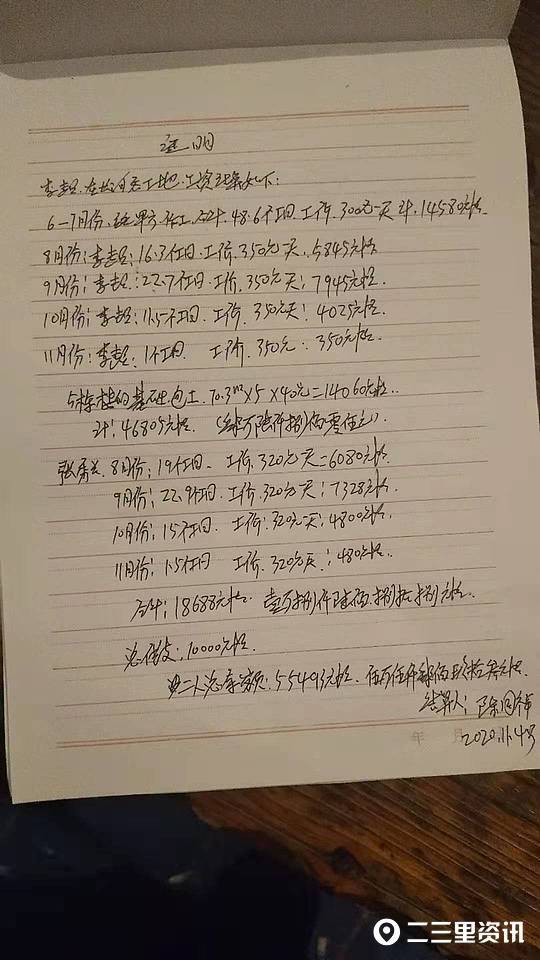 证明
李超 在 工地 工资结算如下:
6-7月份, 48.6个工日. 工价.300元一天 计.14580元
8月份:李超:16.3个工日.工价.350元一天.5845元
9月份:李超:22.7个工日.工价.350元天:7945元
10月份:李超:11.5个工日.工价.350元天:4025元
11月份:李超:1个工日 工价.350元:350元
5栋 基础 包工.70.3m×5×40元=14060元
计:46805元 (肆万陆仟捌佰零伍元)
张 8月份:19个工日. 工价.320元天=6080元
9月份:22.9个工日.工价.320元天:7328元
10月份:15个工日.工价.320元一天:4800元
11月份:1.5个工日 工价.320元天:480元
合计:18688元 壹万捌仟陆佰捌拾捌元
总借支:10000元
二人总 额:55493元. 伍万伍仟肆佰玖拾叁元
结算人:陈
2020.11.4号
年 月
二三里资讯